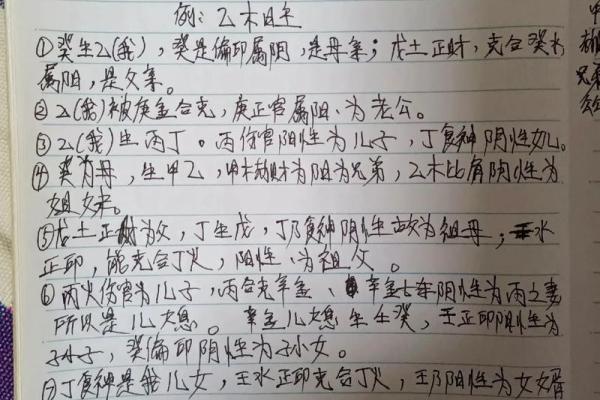 例：乙木日主
①癸生乙(我)，癸是偏印属阴，是母亲；戊土正财，克合癸水
属阳，是父亲。
②乙(我)被庚金合克，庚正官属阳、为老公。
③乙(我)生丙丁。丙伤官阳性为儿子，丁食神阴性女儿。
④癸为母，生甲乙，甲木劫财为阳为兄弟，乙木比肩阴性为
姐妹。
⑤戊土正财为父，丁生戊，丁乃食神阴性故为祖母；壬水
正印，能克合丁火，阳性、为祖父。
⑥丙火伤官为儿子，丙合克辛金、辛金七杀阴性为丙之妻
所以是儿大息。辛金儿大息生壬癸，壬正印阳性为
子小子，癸偏印阴性为子小女。
⑦丁食神是我儿女，壬水正印克合丁火，壬乃阳性为女婿